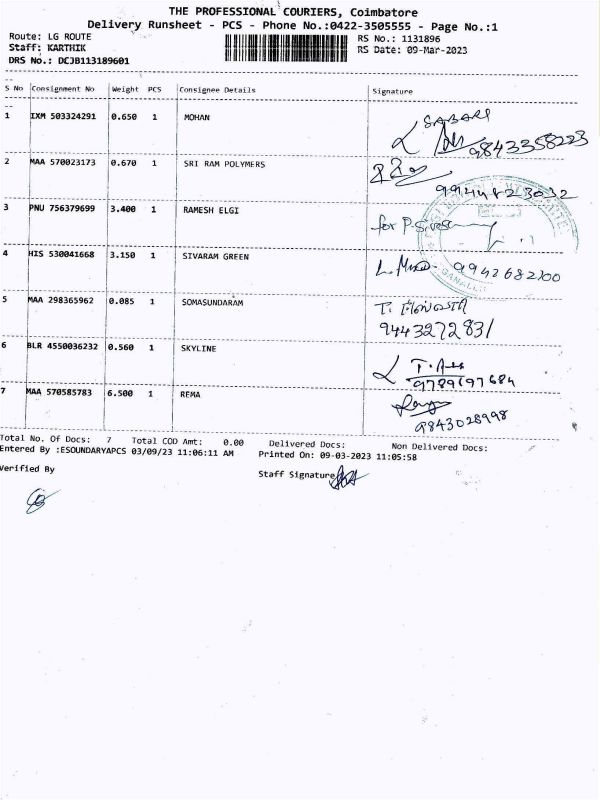 THE PROFESSIONAL COURIERS, Coimbatore
Delivery Runsheet - PCS - Phone No.:0422-3505555 - Page No.:1
Route: LG ROUTE
Staff: KARTHIK
DRS No.: DCJB113189601
RS No.: 1131896
RS Date: 09-Mar-2023
S No Consignment No Weight PCS Consignee Details Signature
1 IXM 503324291 0.650 1 MOHAN SABARI
9843358223
2 MAA 570023173 0.670 1 SRI RAM POLYMERS
9944823032
3 PNU 756379699 3.400 1 RAMESH ELGI for
4 HIS 530041668 3.150 1 SIVARAM GREEN 9942682100
5 MAA 298365962 0.085 1 SOMASUNDARAM T.
9443272831
6 BLR 4550036232 0.560 1 SKYLINE
9789697684
7 MAA 570585783 6.500 1 REMA
9843028998
Total No. Of Docs: 7 Total COD Amt: 0.00 Delivered Docs: Non Delivered Docs:
Entered By :ESOUNDARYAPCS 03/09/23 11:06:11 AM Printed On: 09-03-2023 11:05:58
Verified By Staff Signature